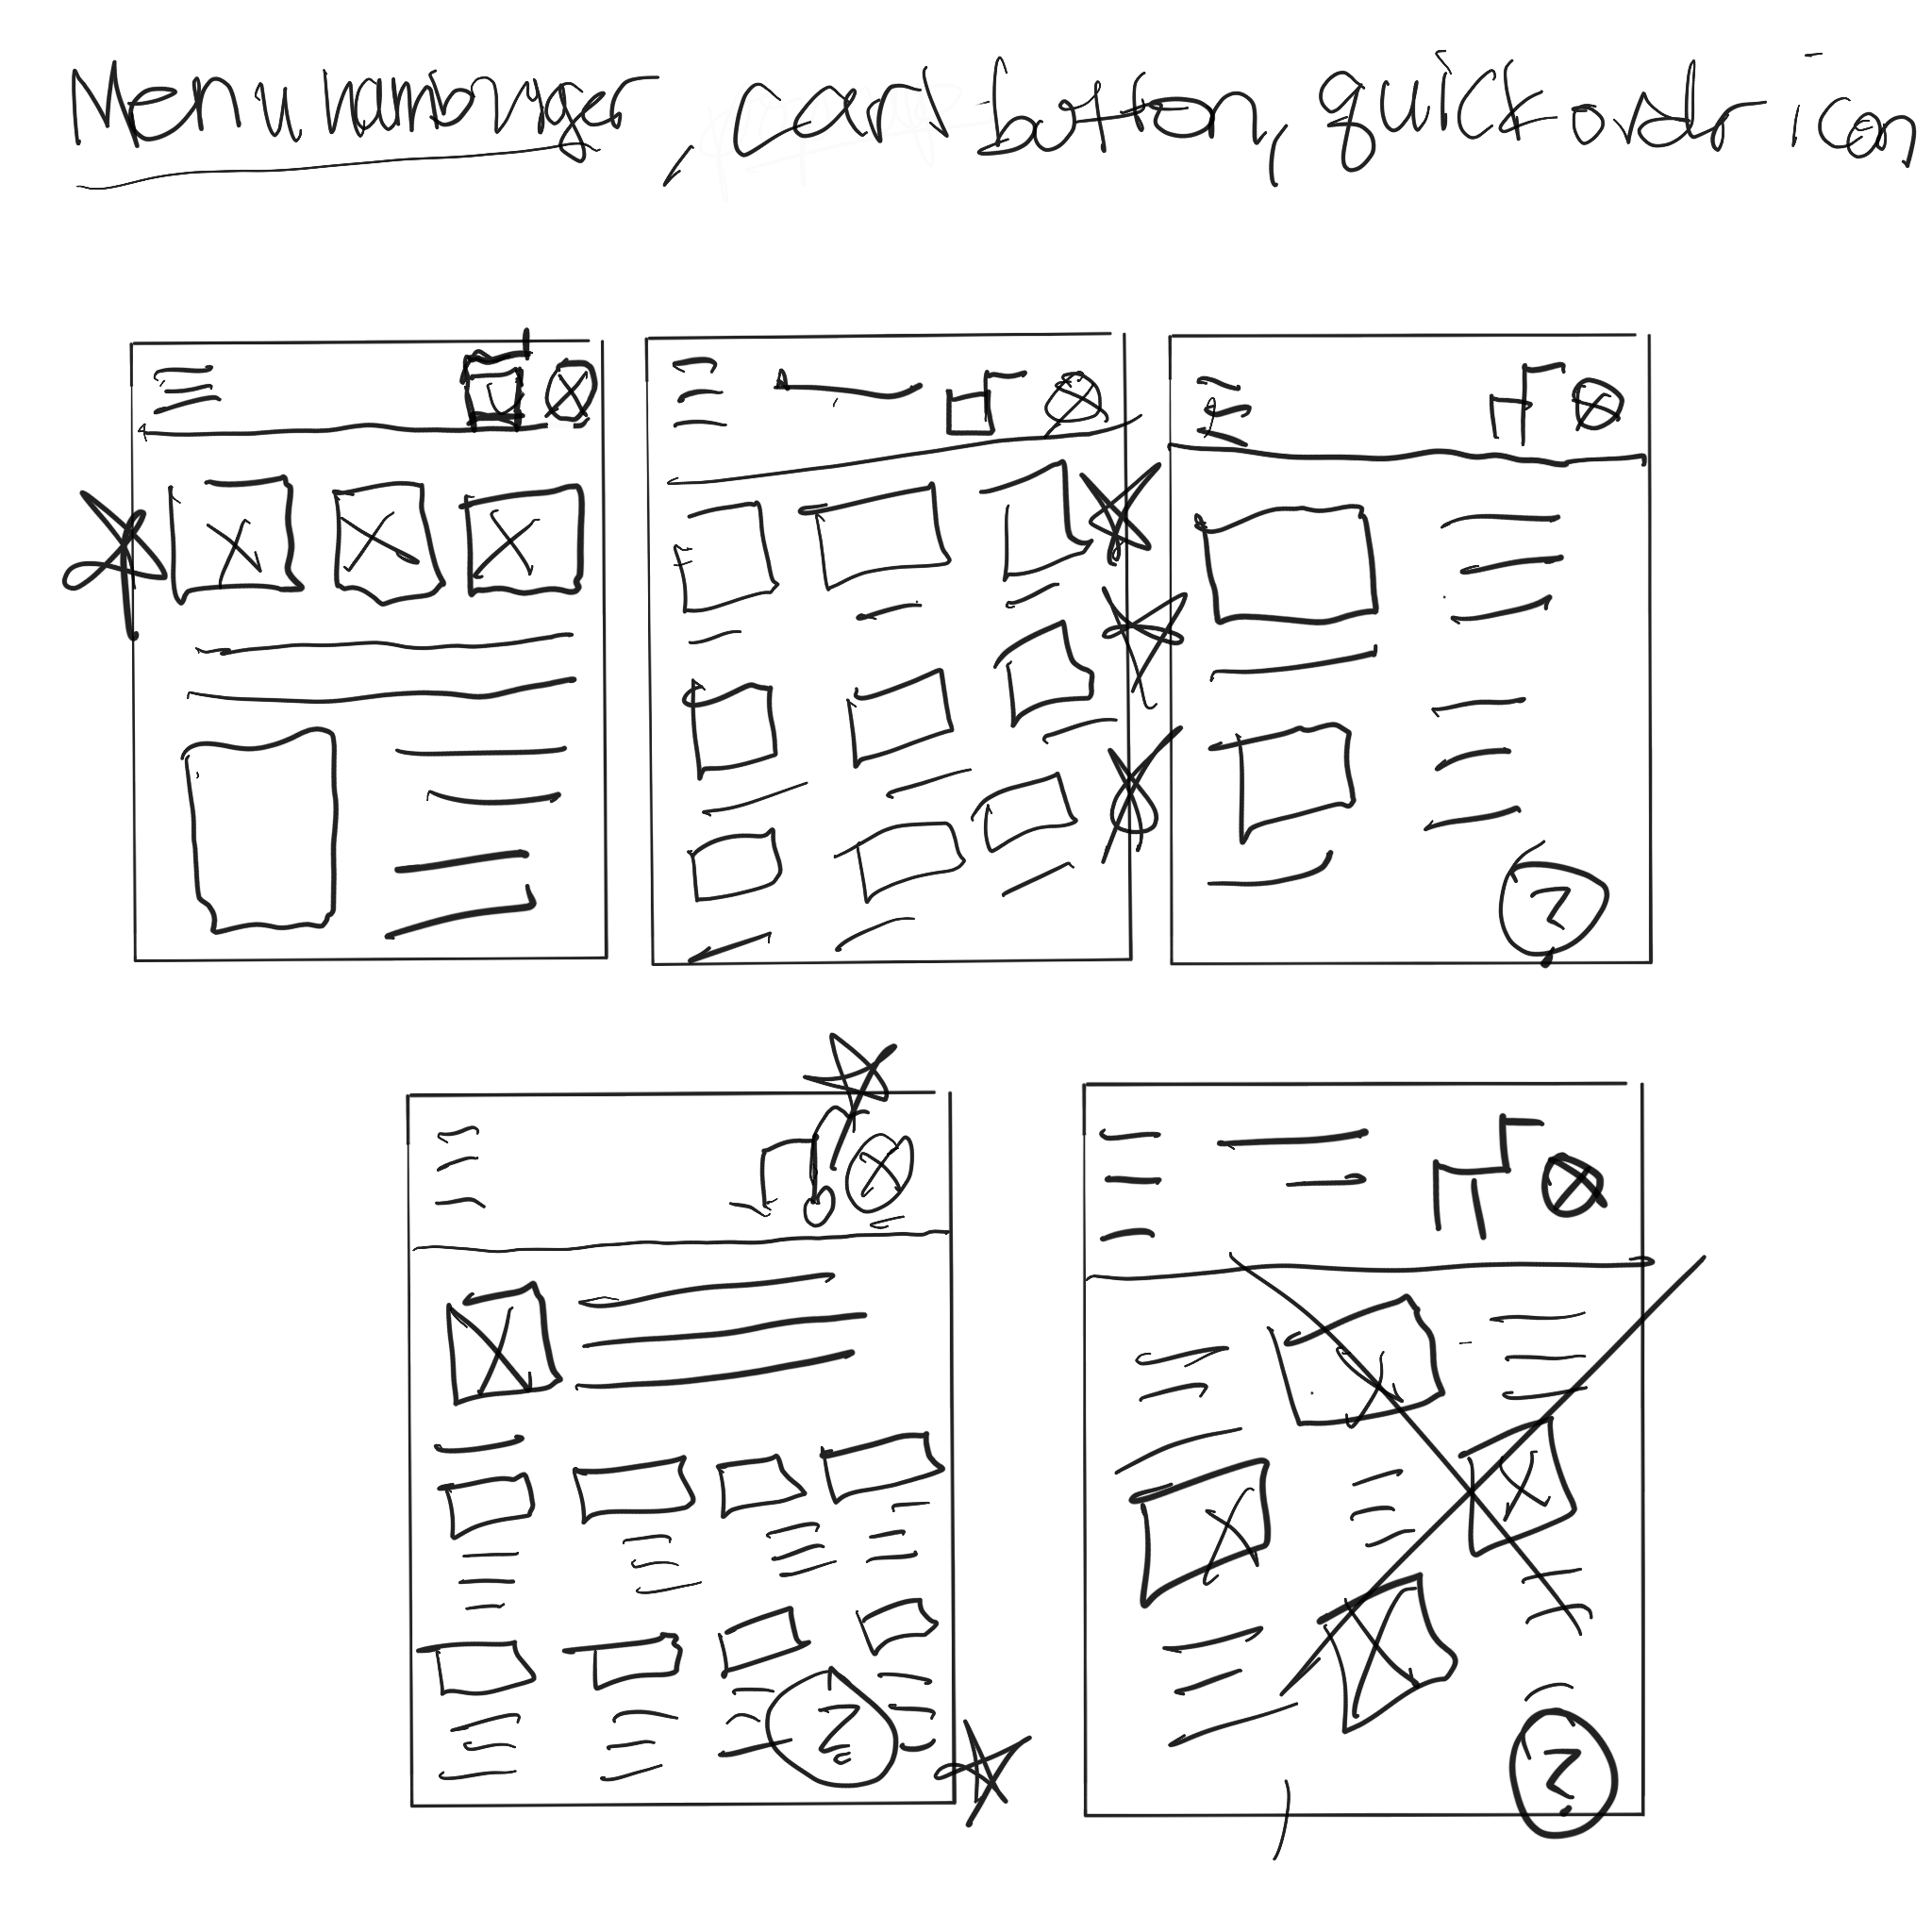 Menu hamburger, cart button, quick order icon
?
?
?